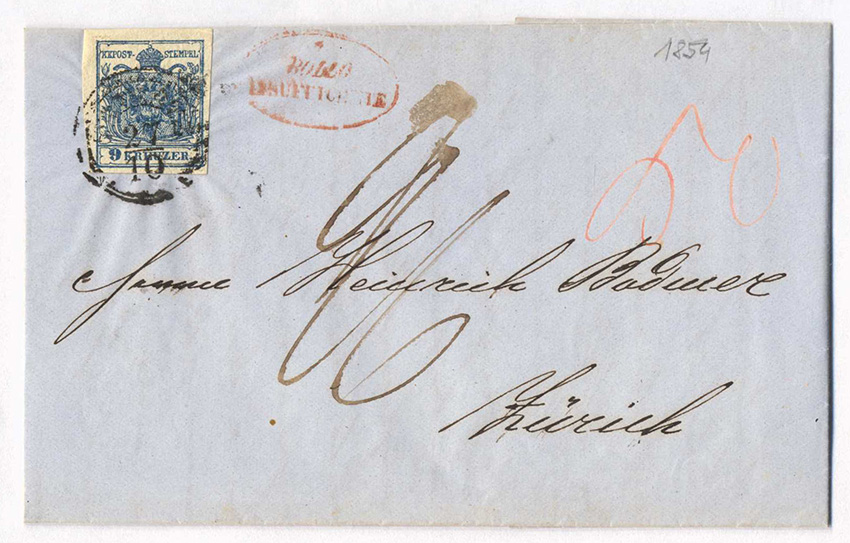 1854
KKPOST-STEMPEL
BOLLO
INSUFFICIENTE
27
10
9 KREUZER
Herrn Heinrich Bodmer
Zürich